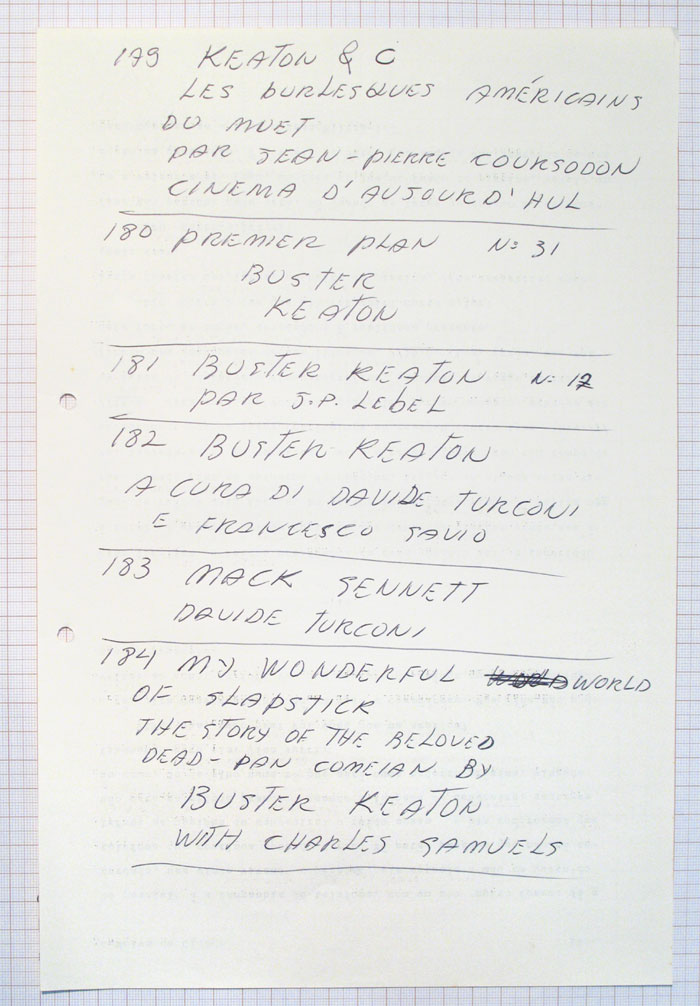 179 KEATON & C
LES BURLESQUES AMÉRICAINS
DU MUET
PAR JEAN-PIERRE COURSODON
CINEMA D'AUJOURD'HUI
180 PREMIER PLAN N: 31
BUSTER
KEATON
181 BUSTER KEATON N: 12
PAR J.P. LEBEL
182 BUSTER KEATON
A CURA DI DAVIDE TURCONI
E FRANCESCO SAVIO
183 MACK SENNETT
DAVIDE TURCONI
184 MY WONDERFUL WORLD
OF SLAPSTICK
THE STORY OF THE BELOVED
DEAD-PAN COMEIAN BY
BUSTER KEATON
WITH CHARLES SAMUELS